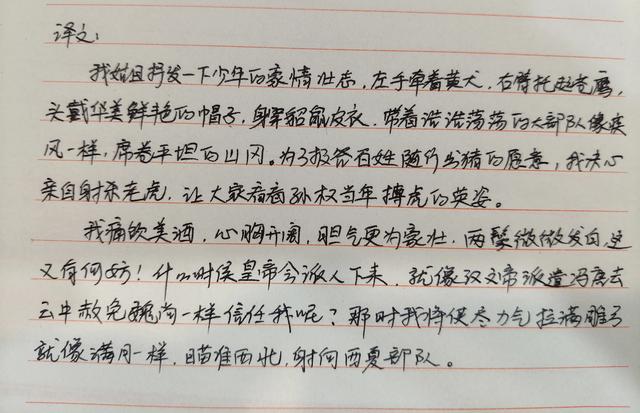 译文:
我姑且抒发一下少年的豪情壮志，左手牵着黄犬，右臂托起苍鹰，
头戴华美鲜艳的帽子，身穿貂鼠皮衣，带着浩浩荡荡的大部队像疾
风一样，席卷平坦的山冈。为了报答百姓随行出猎的厚意，我决心
亲自射杀老虎，让大家看看孙权当年搏虎的英姿。
我痛饮美酒，心胸开阔，胆气更为豪壮，两鬓微微发白，这
又有何妨！什么时侯皇帝会派人下来，就像汉文帝派遣冯唐去
云中赦免魏尚一样信任我呢？那时我将使尽力气拉满雕弓
就像满月一样，瞄准西北，射向西夏部队。